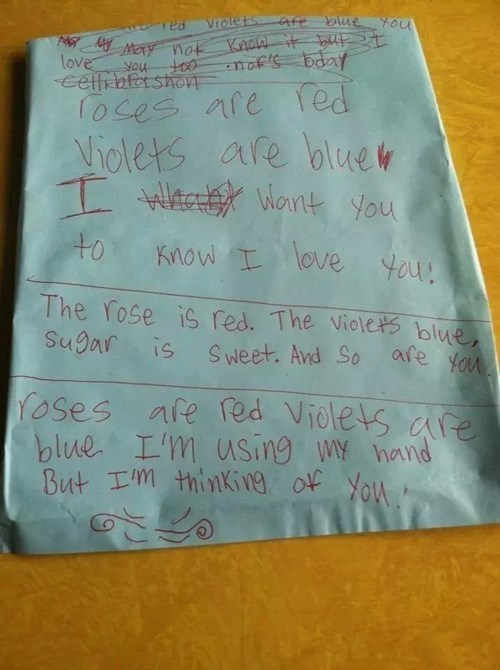 are red violets are blue you
may not know it but I
love you too nof's bday
cellibrashon
roses are red
Violets are blue
I Want you
to know I love you!
The rose is red. The violets blue,
sugar is sweet. And so are you.
roses are red violets are
blue I'm using my hand
But I'm thinking of you.!